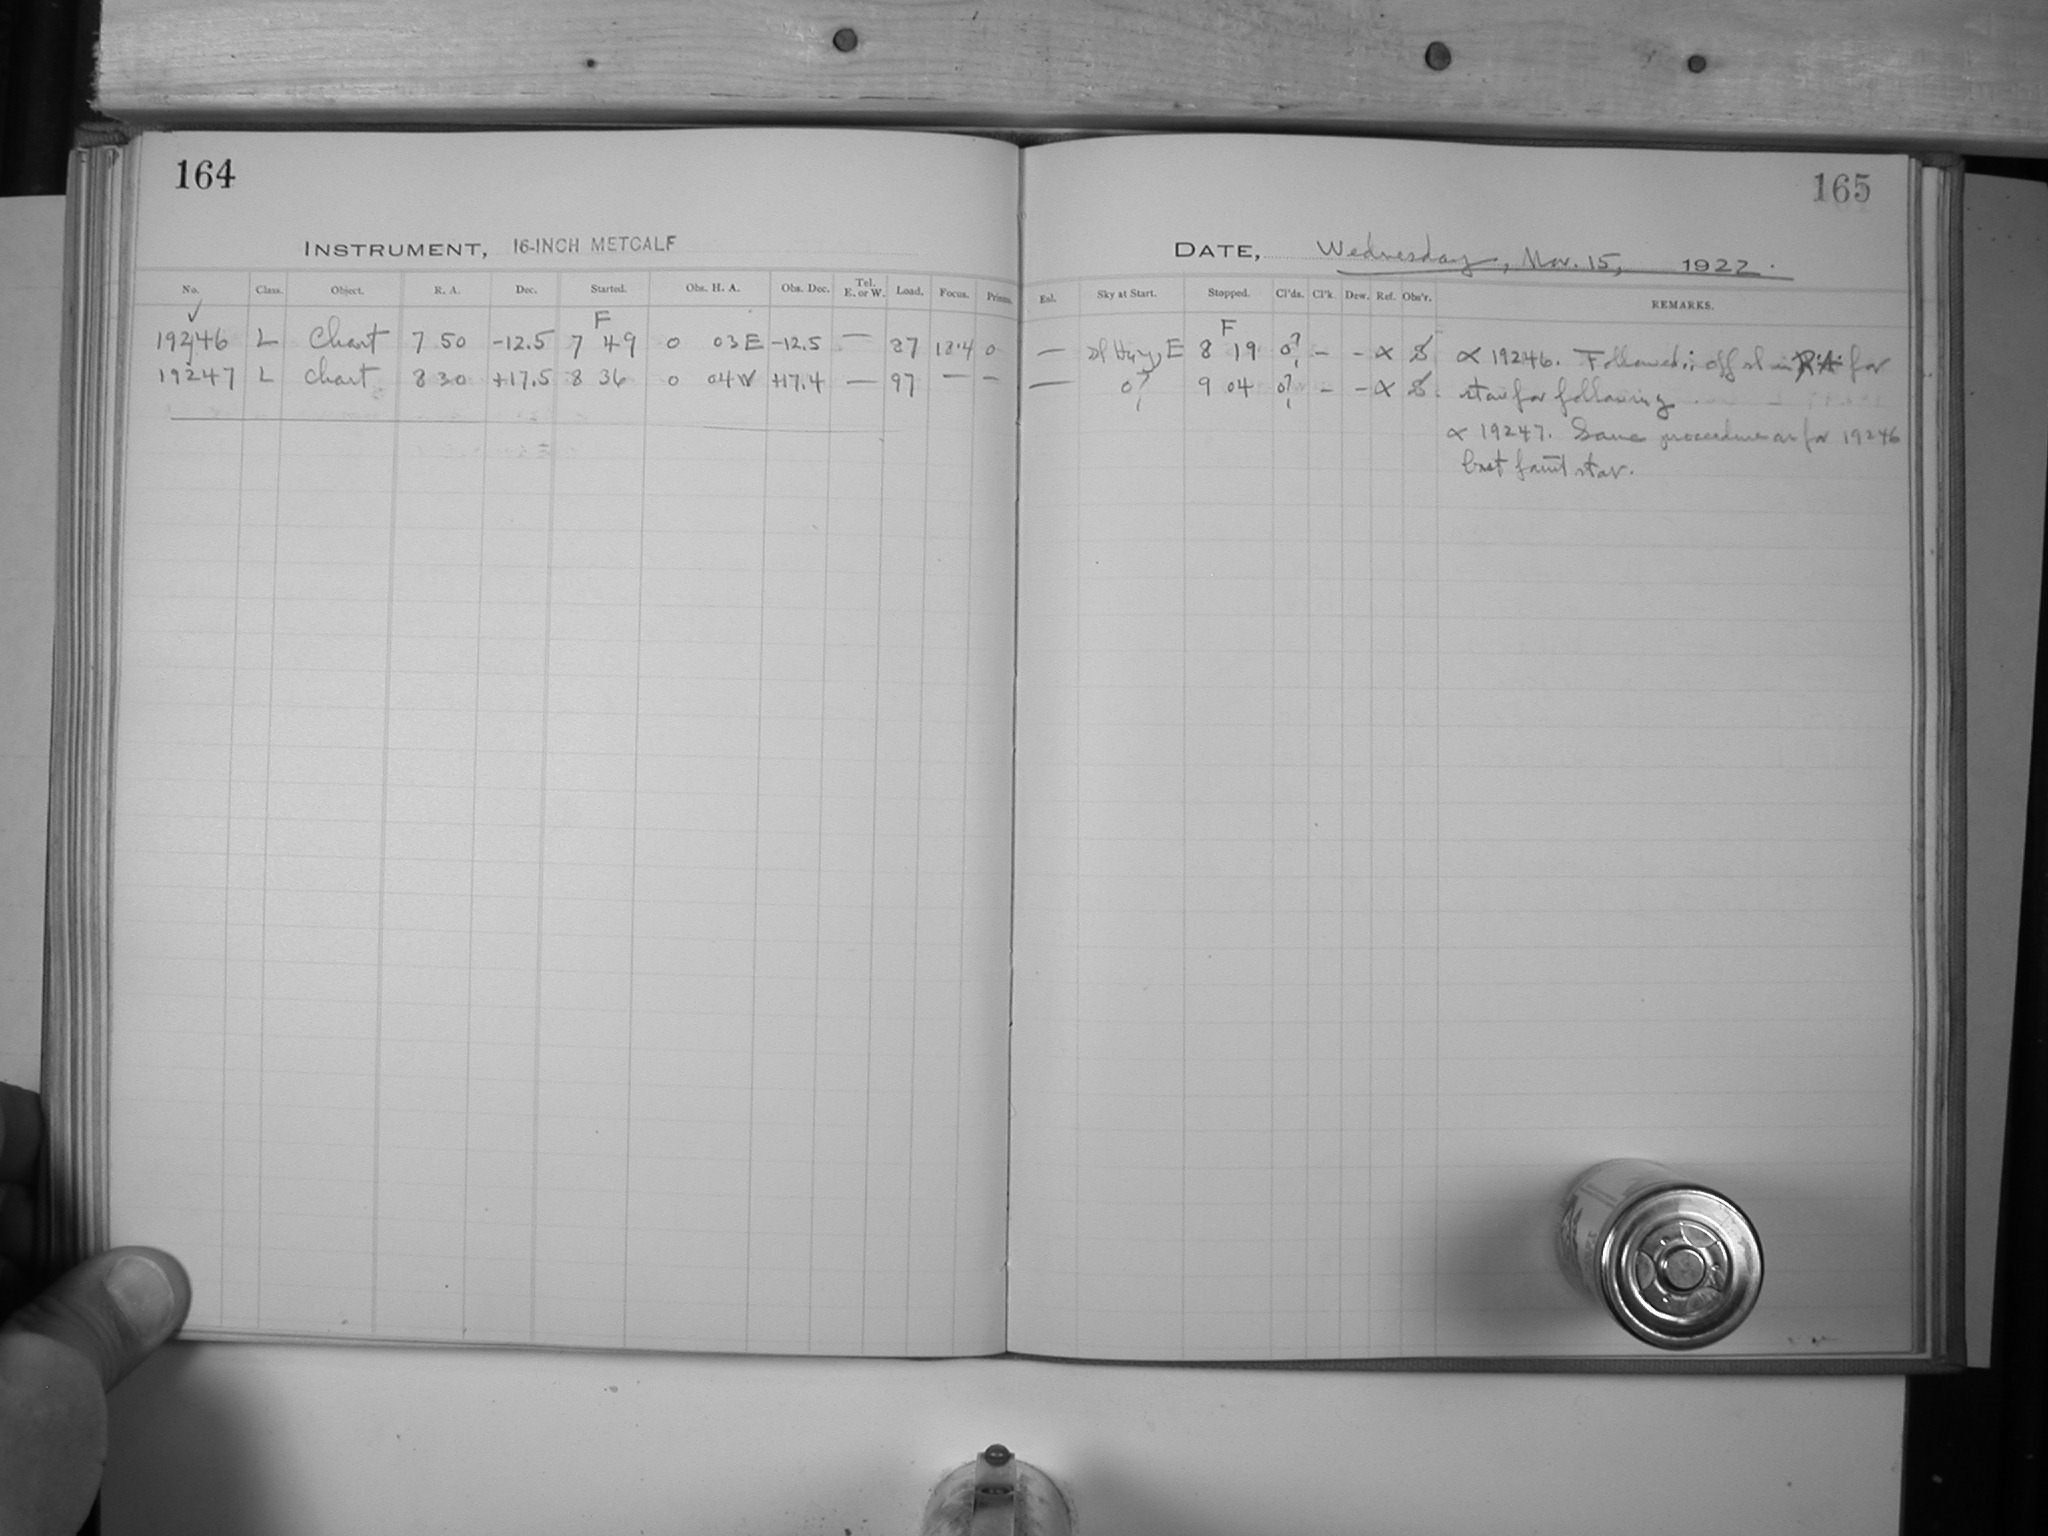 164
165
INSTRUMENT, 16-INCH METCALF
DATE, Wednesday, Nov. 15, 1922.
No. Class. Object. R. A. Dec. Started. Obs. H. A. Obs. Dec. Tel. E. or W. Load. Focus. Prism. Eal. Sky at Start. Stopped. Cl'ds. Cl'k. Dew. Ref. Obs'r. REMARKS.
✓ F F
19246 L Chart 7 50 -12.5 7 49 0 03 E -12.5 — 87 12.4 0 — Sl Hazy, E 8 19 0? - - α S α 19246. Followed; off sl in for
19247 L Chart 8 30 +17.5 8 36 0 04 W +17.4 — 97 — — — 0? 9 04 0? - - α S. star for following
α 19247. Same procedure as for 19246
but faint star.